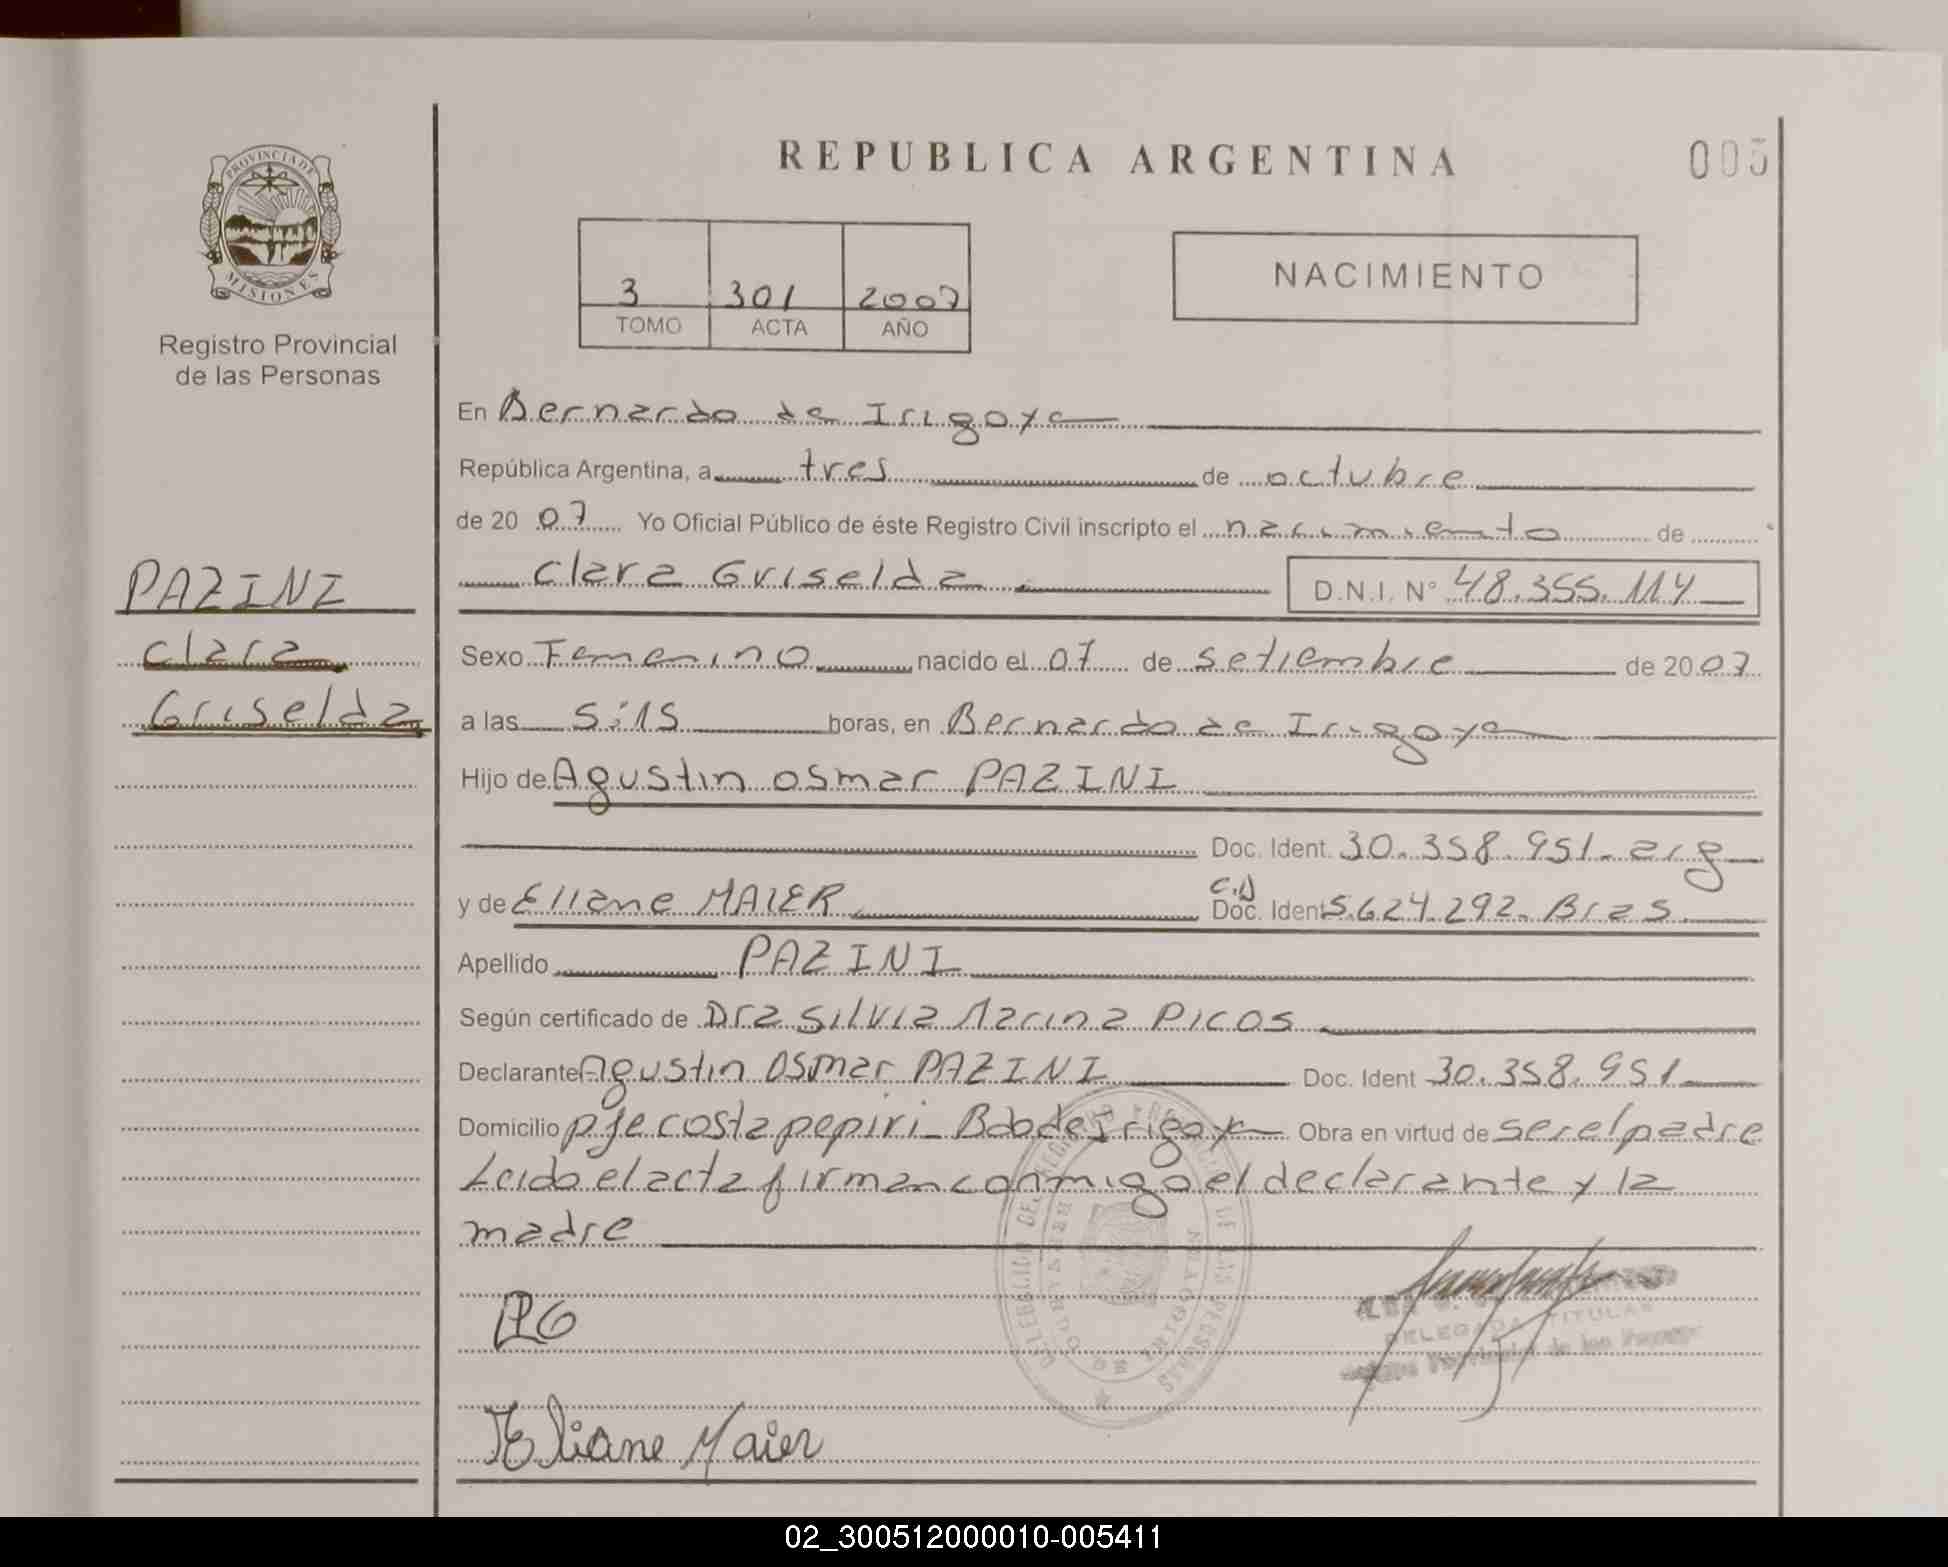 REPUBLICA ARGENTINA
005
PROVINCIA DE
MISIONES
Registro Provincial
de las Personas
3 301 2007
TOMO ACTA AÑO
NACIMIENTO
En Bernardo de Irigoye
República Argentina, a tres de octubre
de 20 07 Yo Oficial Público de éste Registro Civil inscripto el nacimiento de
Clara Griselda D.N.I. Nº 48.355.114
PAZINI
Clara
Griselda
Sexo Femenino nacido el 07 de setiembre de 2007
a las 5:15 horas, en Bernardo de Irigoye
Hijo de Agustin Osmar PAZINI
Doc. Ident. 30.358.951. arg
y de Eliane MAIER C.I Doc. Ident 5.624.292. Bras
Apellido PAZINI
Según certificado de Dra Silvia Marina Picos
Declarante Agustin Osmar PAZINI Doc. Ident 30.358.951
Domicilio pje costa pepiri - Bdo de Irigoye Obra en virtud de ser el padre
Leido el acta firman conmigo el declarante y la
madre
Eliane Maier
DELEGADA TITULAR
Provincial de las
02_300512000010-005411